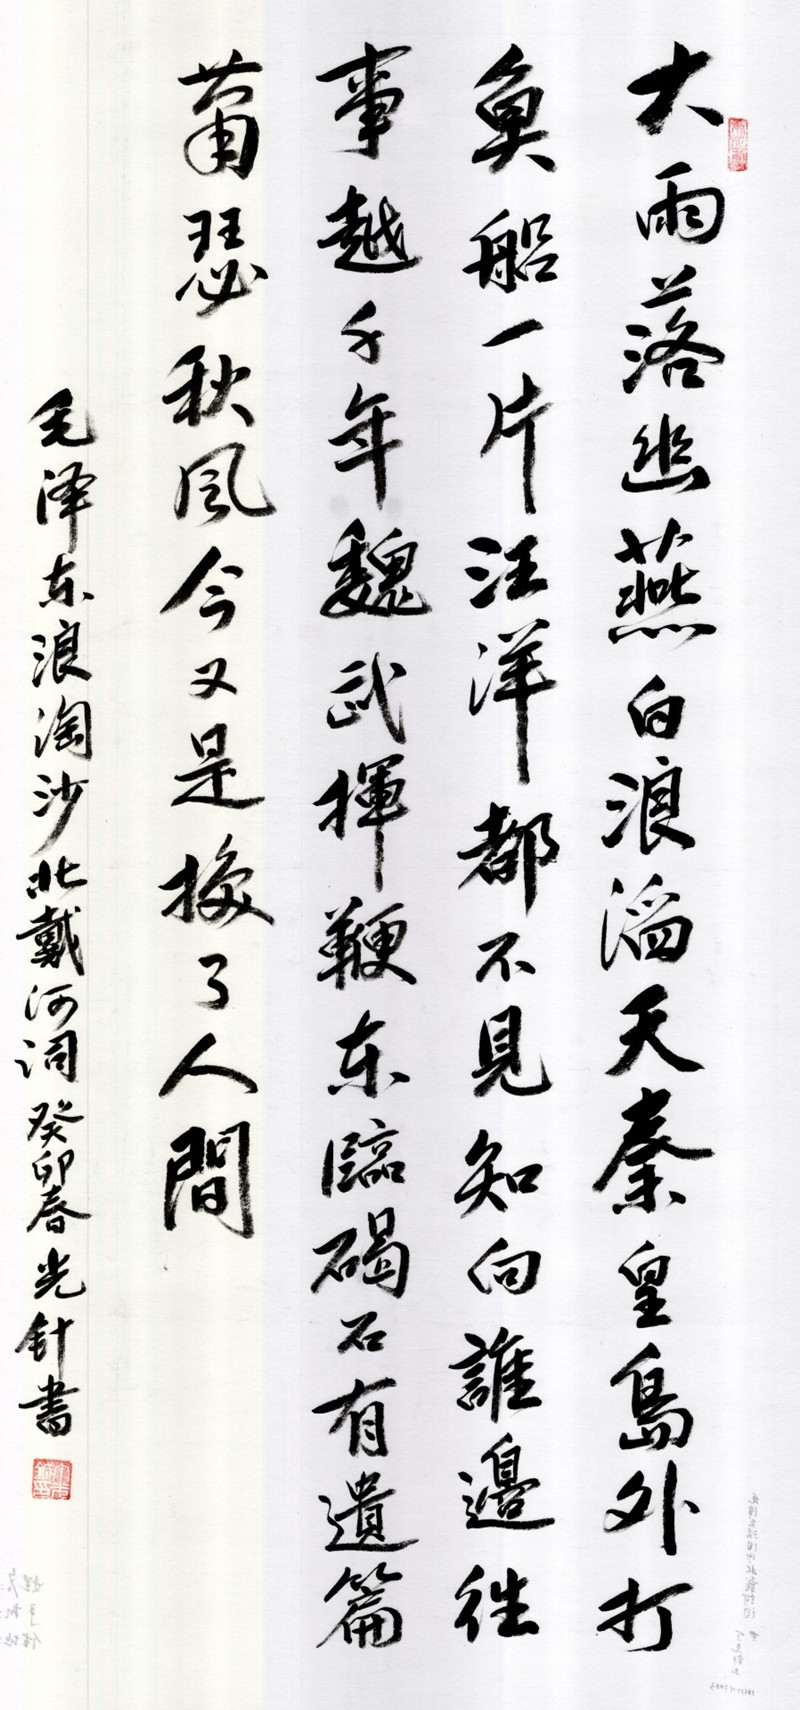 大雨落幽燕白浪滔天秦皇島外打
魚船一片汪洋都不見知向誰邊往
事越千年魏武揮鞭东臨碣石有遺篇
蕭瑟秋风今又是换了人間
毛泽东浪淘沙北戴河词癸卯春光針書